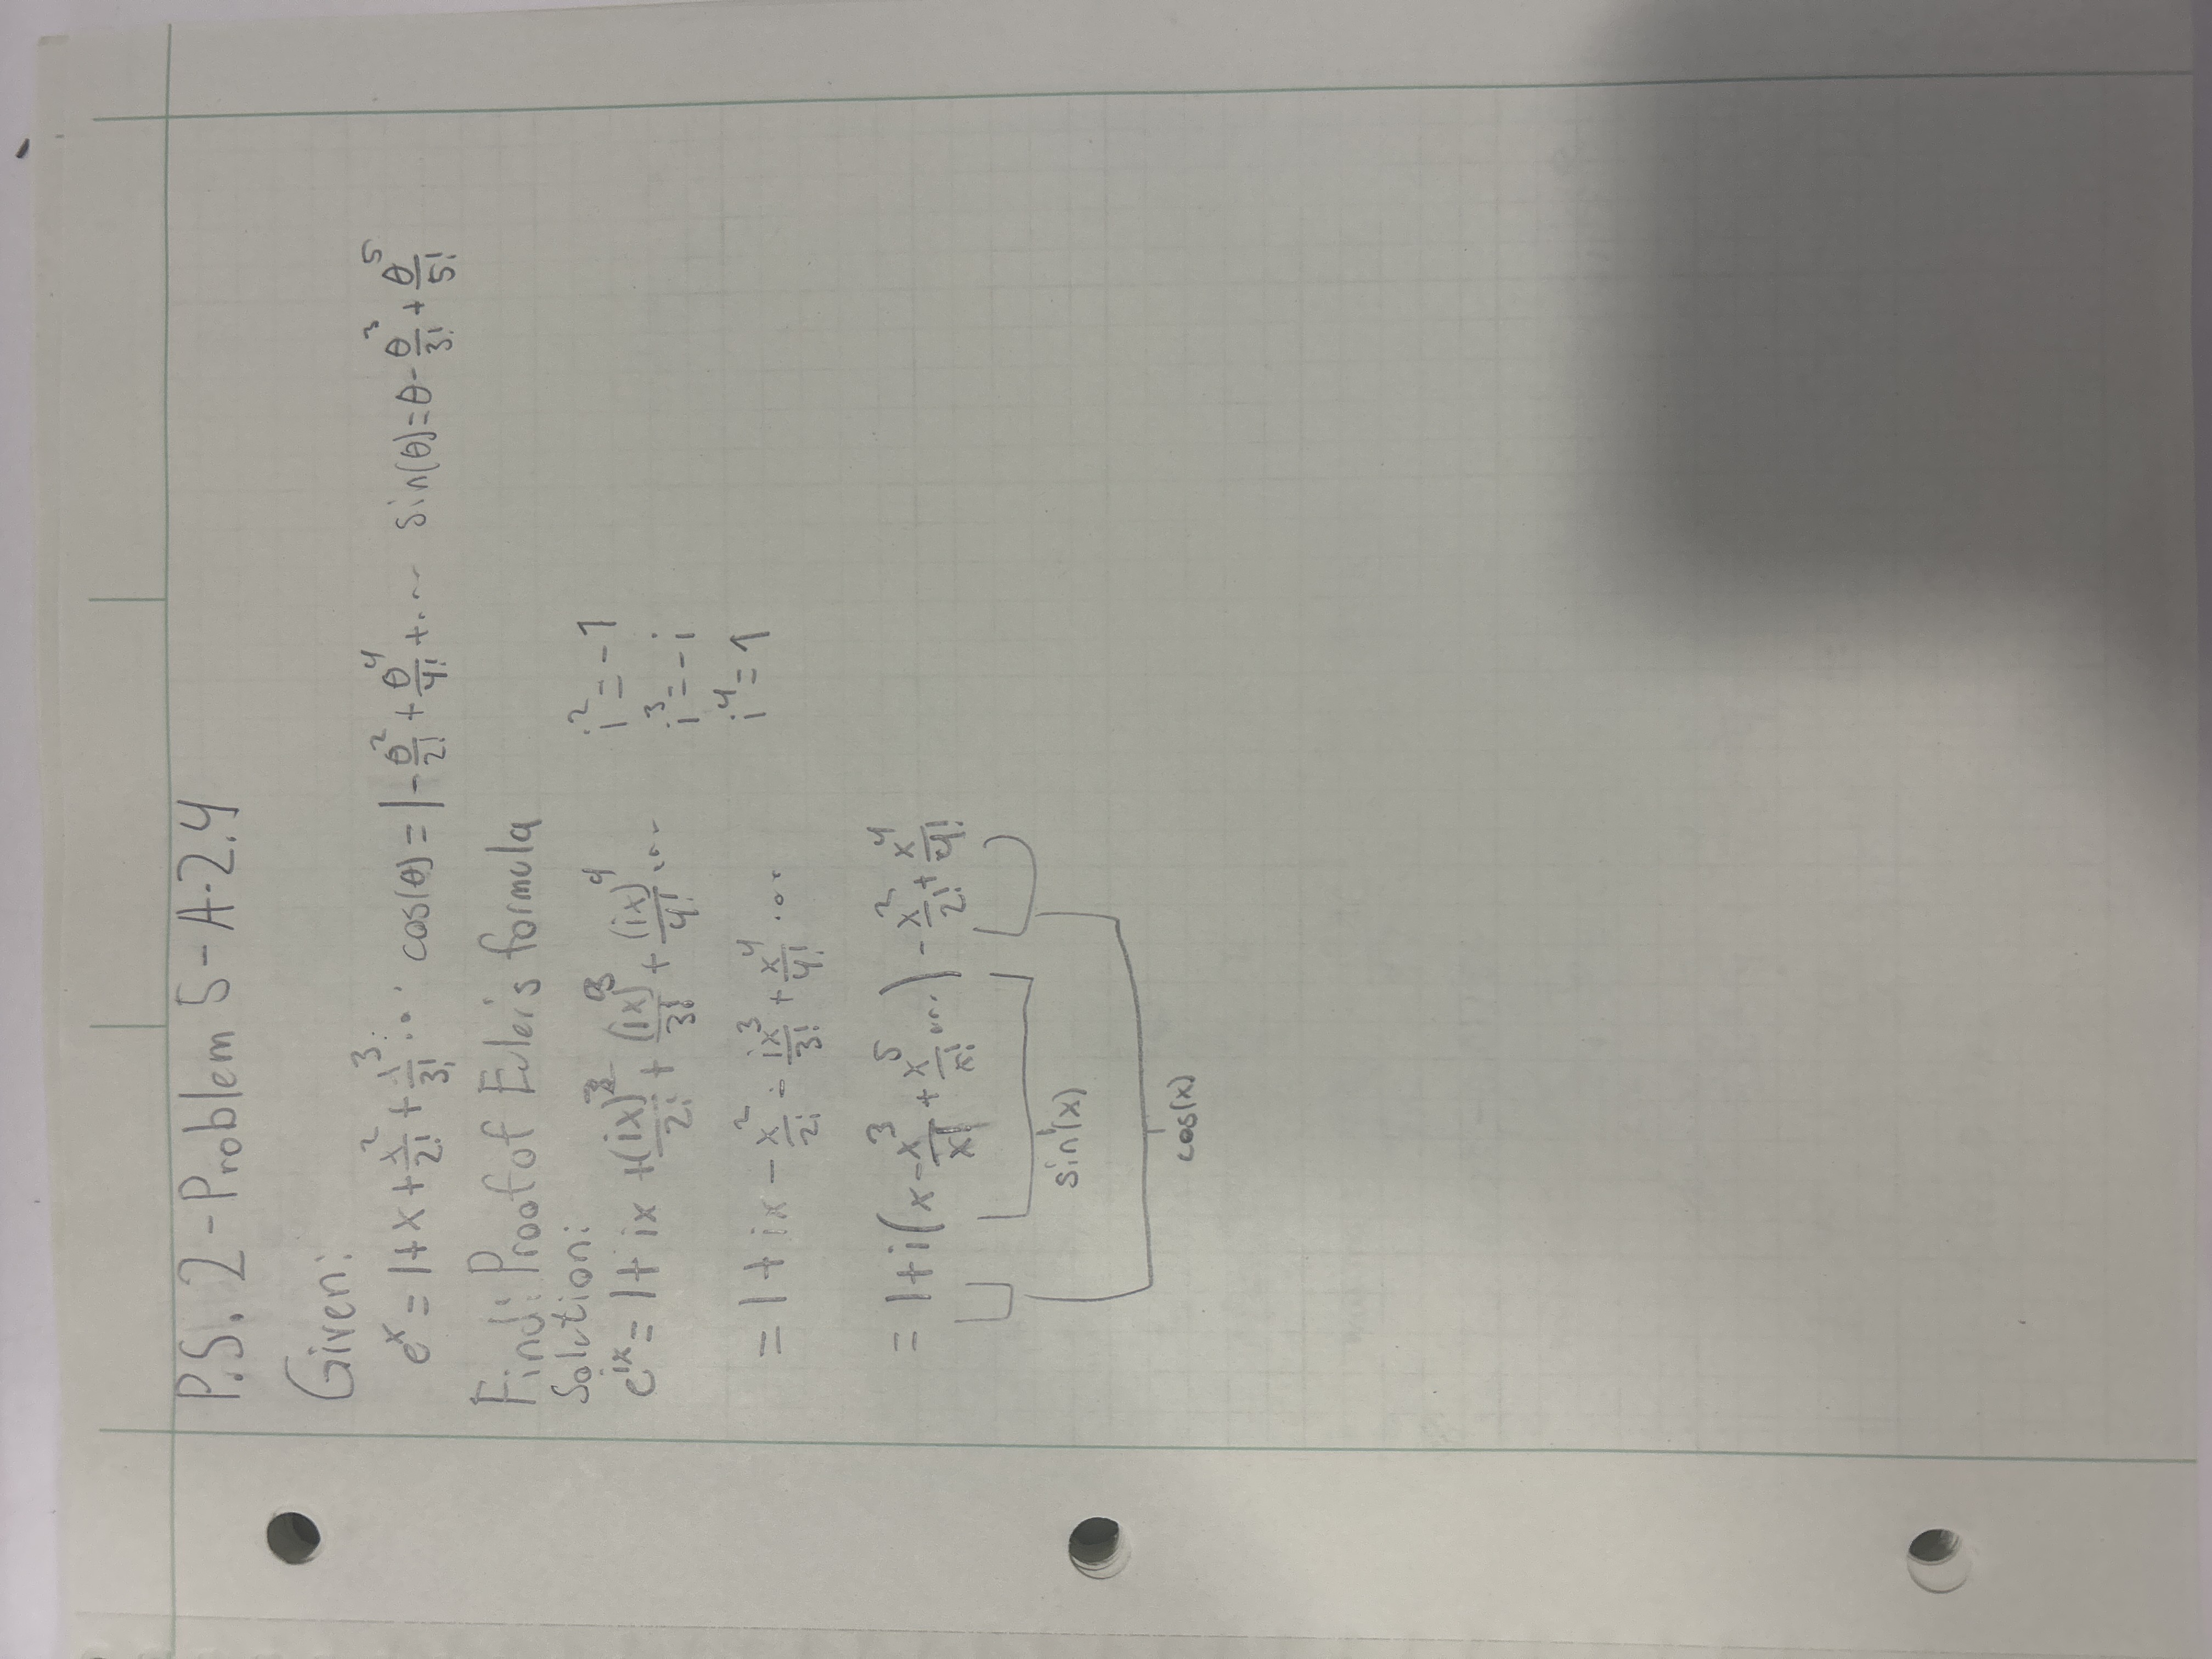 P.S. 2 - Problem 5 - A-2.4
Given:
e^x = 1 + x + x^2/2! + x^3/3! ... cos(θ) = 1 - θ^2/2! + θ^4/4! + ... sin(θ) = θ - θ^3/3! + θ^5/5!
Find: Proof of Euler's formula
Solution:
e^ix = 1 + ix + (ix)^2/2! + (ix)^3/3! + (ix)^4/4! ... i^2 = -1
i^3 = -i
= 1 + ix - x^2/2! - ix^3/3! + x^4/4! ... i^4 = 1
= 1 + i(x - x^3/x! + x^5/x! ...) - x^2/2! + x^4/4!
sin(x)
cos(x)